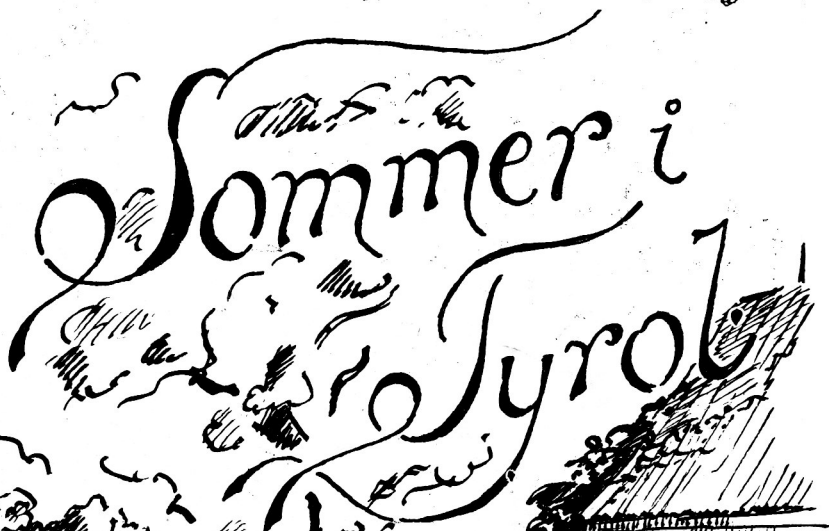 Sommer i
Tyrol